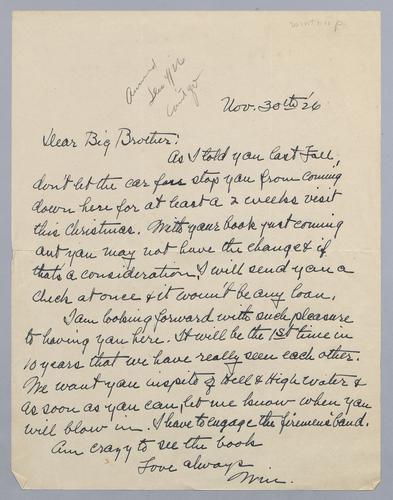 Winthrop
Answered
Nov. 30th '26
Dear Big Brother:
As I told you last Fall,
don't let the car fare stop you from coming
down here for at least a 2 weeks visit
this Christmas. With your book just coming
out you may not have the change & if
that's a consideration, I will send you a
check at once & it wount be any loan.
I am looking forward with such pleasure
to having you here. It will be the 1st time in
10 years that we have really seen each other.
We want you inspite of Hell & High Water &
as soon as you can, let me know when you
will blow in. I have to engage the firemens band.
Am crazy to see the book
Love always
Win.